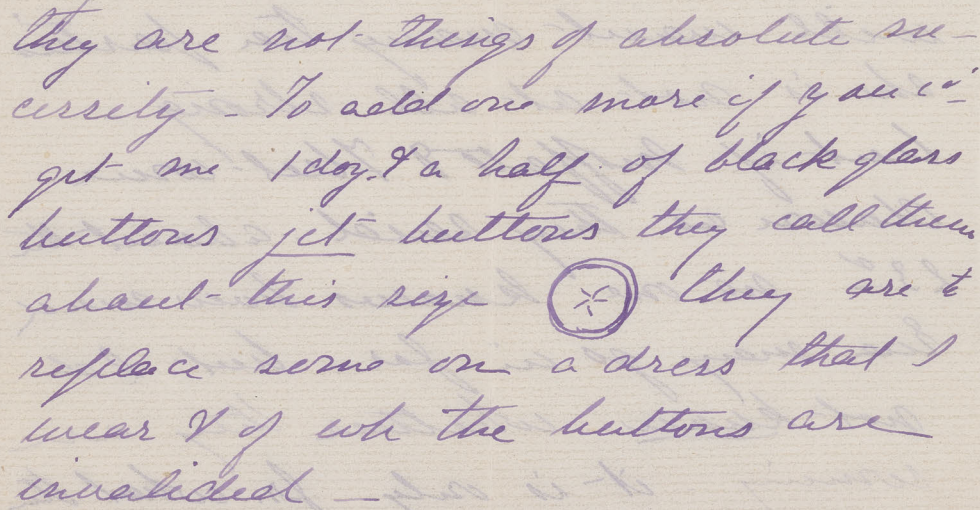 they are not things of absolute ne-
cessity - To add one more if you
get me 1 doz. & a half of black glass
buttons jet buttons they call them
about this size they are to
replace some on a dress that I
wear & of wh the buttons are
invalided -